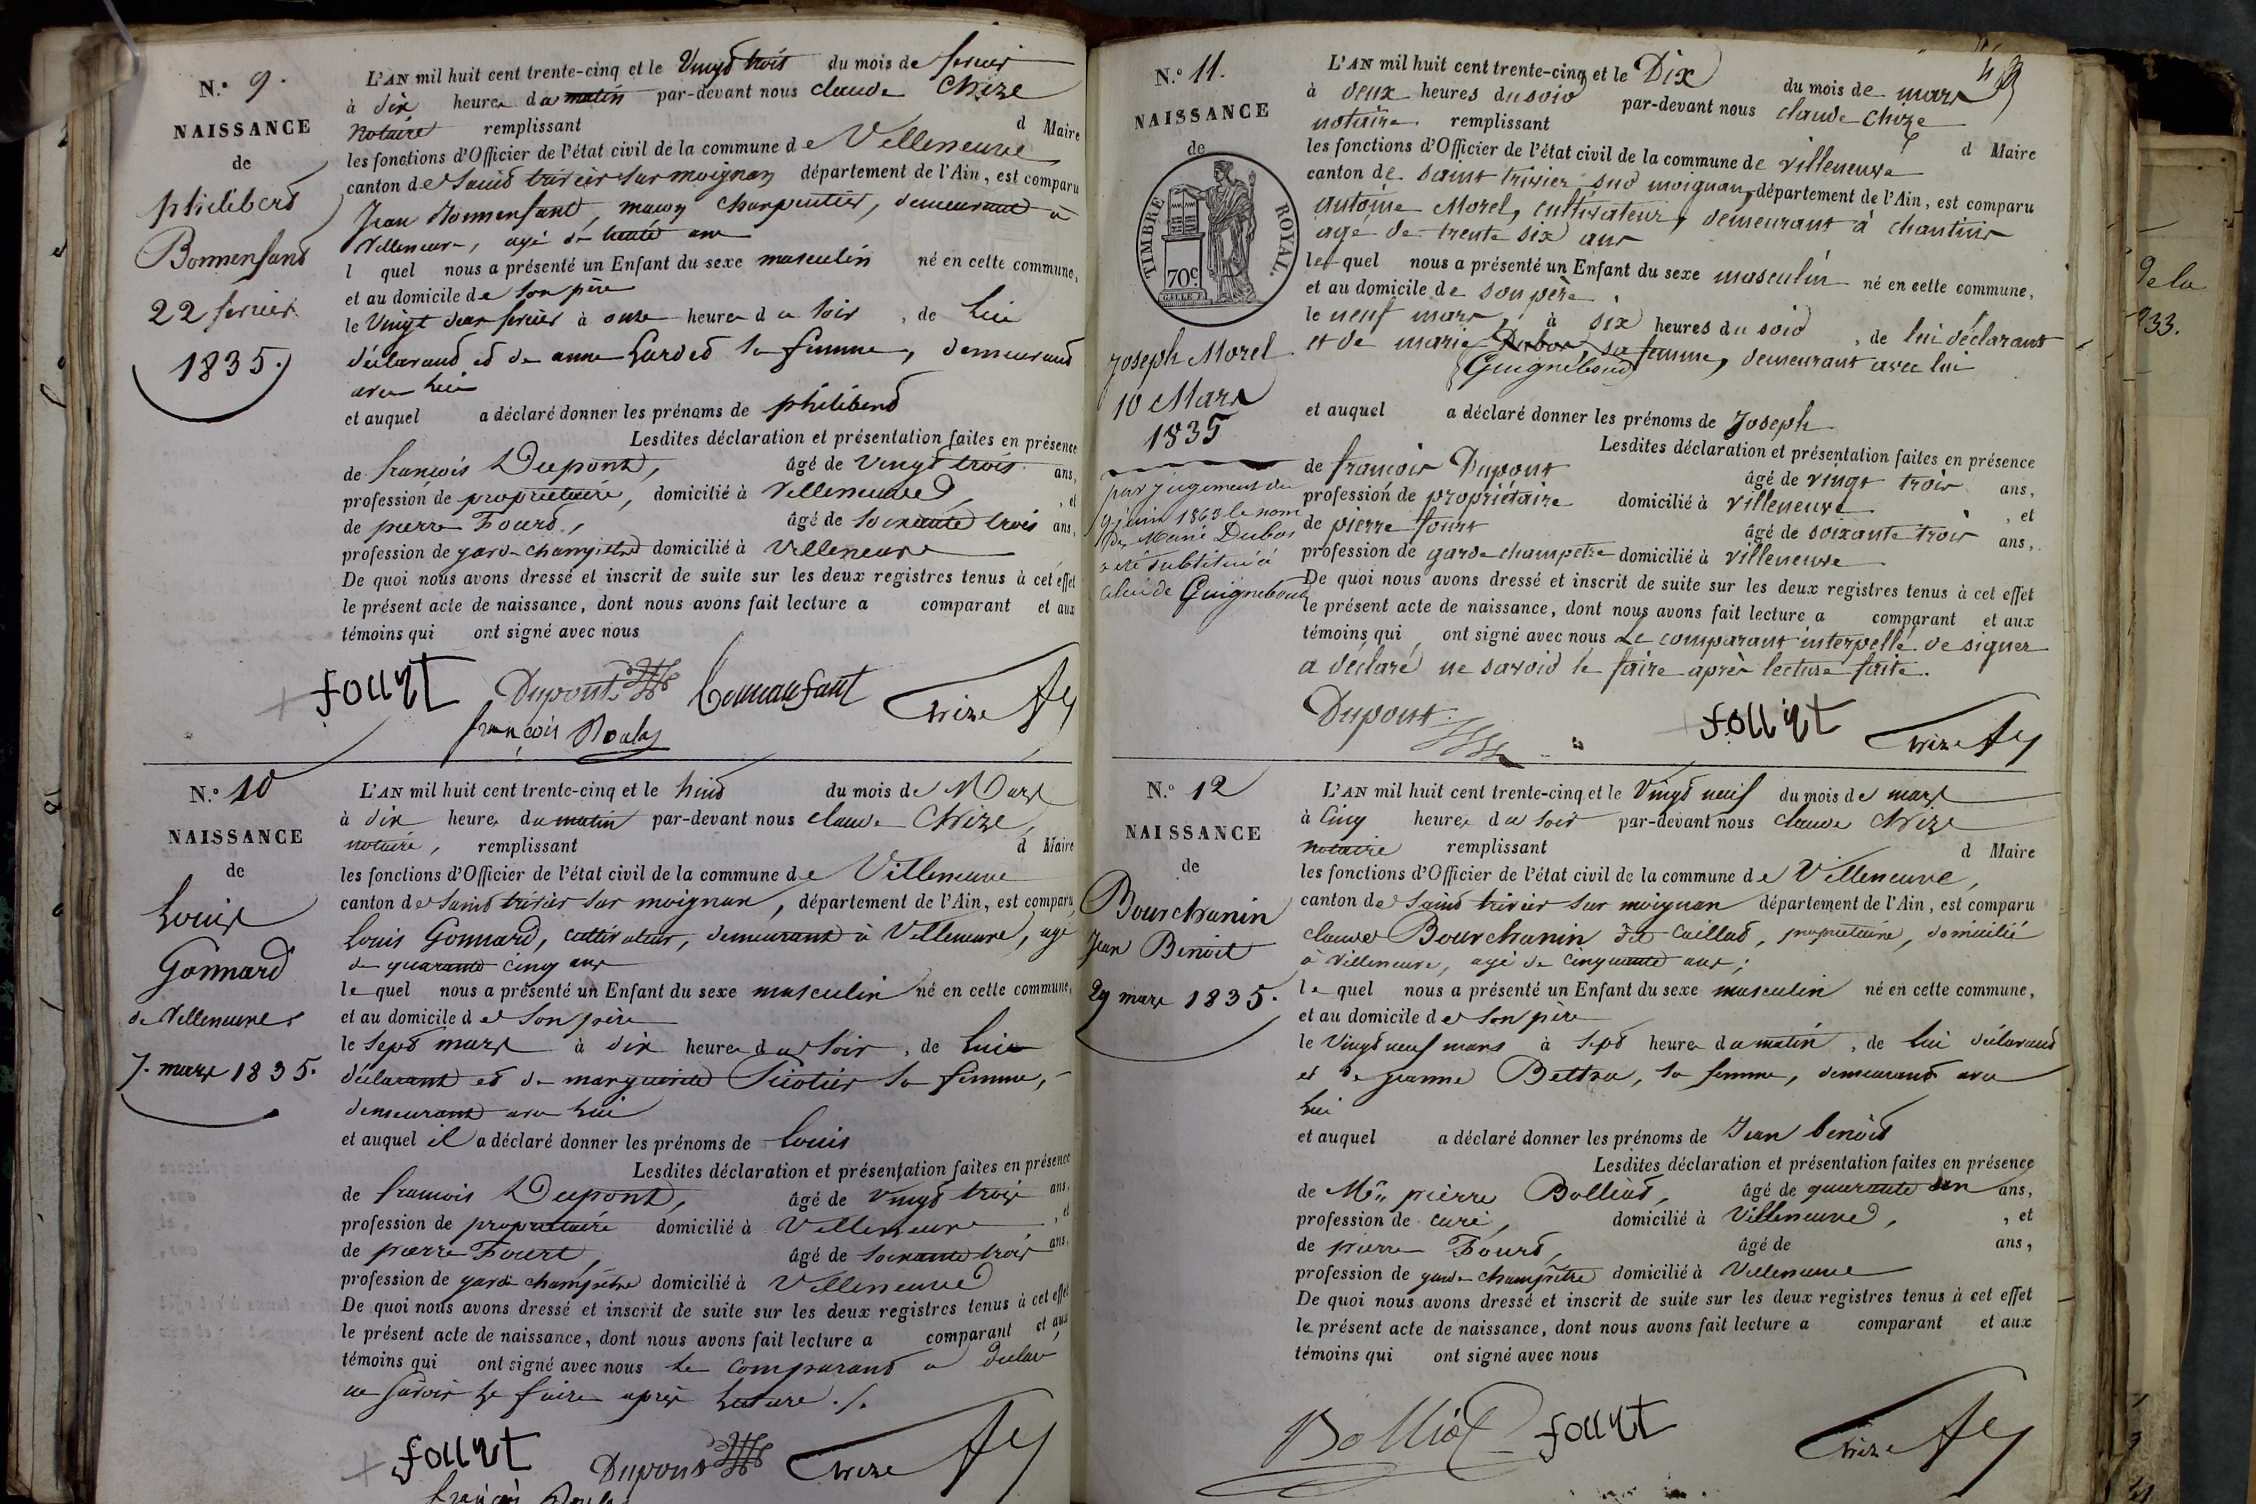 N.° 9.
NAISSANCE
de
philibert
Bonnenfant
22 fevrier
1835.
L'AN mil huit cent trente-cinq et le Vingt trois du mois de fevrier
à dix heures du matin par-devant nous claude Chize
notaire remplissant d Maire
les fonctions d'Officier de l'état civil de la commune de Villeneuve
canton de Saint trivier sur moignan département de l'Ain, est comparu
Jean Bonnenfant, maçon charpentier, demeurant à
Villeneuve, agé de trente ans
l quel nous a présenté un Enfant du sexe masculin né en cette commune,
et au domicile de son père
le Vingt deux fevrier à onze heures du soir, de lui
déclarant et de anne Lardet sa femme, demeurant
avec lui
et auquel a déclaré donner les prénoms de philibert
Lesdites déclaration et présentation faites en présence
de françois Dupont, âgé de vingt trois ans,
profession de propriétaire, domicilié à Villeneuve, et
de pierre Fourt, âgé de soixante trois ans,
profession de garde champêtre domicilié à Villeneuve
De quoi nous avons dressé et inscrit de suite sur les deux registres tenus à cet effet
le présent acte de naissance, dont nous avons fait lecture a comparant et aux
témoins qui ont signé avec nous
fourt Dupont Bonnanfant Chize
françois
N.° 10
NAISSANCE
de
Louis
Gonnard
de Villeneuve
7. mars 1835.
L'AN mil huit cent trente-cinq et le huit du mois de Mars
à dix heures du matin par-devant nous claude Chize,
notaire, remplissant d Maire
les fonctions d'Officier de l'état civil de la commune de Villeneuve
canton de Saint trivier sur moignan, département de l'Ain, est comparu
Louis Gonnard, cultivateur, demeurant à Villeneuve, agé
de quarante cinq ans
le quel nous a présenté un Enfant du sexe masculin né en cette commune,
et au domicile de son père
le sept mars à dix heures du soir, de lui
déclarant et de marguerite sa femme,
demeurant avec lui
et auquel il a déclaré donner les prénoms de Louis
Lesdites déclaration et présentation faites en présence
de françois Dupont, âgé de vingt trois ans,
profession de propriétaire domicilié à Villeneuve, et
de pierre Fourt, âgé de soixante trois ans,
profession de garde champêtre domicilié à Villeneuve
De quoi nous avons dressé et inscrit de suite sur les deux registres tenus à cet effet
le présent acte de naissance, dont nous avons fait lecture a comparant et aux
témoins qui ont signé avec nous le comparant a déclaré
ne savoir le faire après lecture ./.
fourt Dupont Chize
françois
N.° 11.
NAISSANCE
de
TIMBRE ROYAL.
70c
Joseph Morel
10 Mars
1835
par jugement du
9 juin 1863 le nom
de Marie Dubost
a été substitué à
celui de Guigneboud
L'AN mil huit cent trente-cinq et le Dix du mois de mars
à deux heures du soir par-devant nous claude Chize
notaire remplissant d Maire
les fonctions d'Officier de l'état civil de la commune de villeneuve
canton de saint trivier sur moignan, département de l'Ain, est comparu
antoine Morel, cultivateur, demeurant à chantins
agé de trente six ans
le quel nous a présenté un Enfant du sexe masculin né en cette commune,
et au domicile de son père
le neuf mars, à six heures du soir, de lui déclarant
et de marie Dubost sa femme, demeurant avec lui
(Guignéboud)
et auquel a déclaré donner les prénoms de Joseph
Lesdites déclaration et présentation faites en présence
de françois Dupont âgé de vingt trois ans,
profession de propriétaire domicilié à villeneuve, et
de pierre fourt âgé de soixante trois ans,
profession de garde champetre domicilié à villeneuve
De quoi nous avons dressé et inscrit de suite sur les deux registres tenus à cet effet
le présent acte de naissance, dont nous avons fait lecture a comparant et aux
témoins qui ont signé avec nous Le comparant interpellé de signer
a déclaré ne savoir le faire après lecture faite.
Dupont fourt Chize
N.° 12
NAISSANCE
de
Bourchanin
Jean Benoit
29 mars 1835.
L'AN mil huit cent trente-cinq et le Vingt neuf du mois de mars
à Cinq heures du soir par-devant nous claude Chize
notaire remplissant d Maire
les fonctions d'Officier de l'état civil de la commune de Villeneuve,
canton de Saint trivier sur moignan département de l'Ain, est comparu
claude Bourchanin dit Caillat, propriétaire, domicilié
à Villeneuve, agé de cinquante ans;
le quel nous a présenté un Enfant du sexe masculin né en cette commune,
et au domicile de son père
le Vingt neuf mars à sept heures du matin, de lui déclarant
et de jeanne sa femme, demeurant avec
lui
et auquel a déclaré donner les prénoms de Jean benoit
Lesdites déclaration et présentation faites en présence
de Mtre pierre Bolliat, âgé de quarante un ans,
profession de curé, domicilié à Villeneuve, et
de pierre Fourt, âgé de ans,
profession de garde champêtre domicilié à Villeneuve
De quoi nous avons dressé et inscrit de suite sur les deux registres tenus à cet effet
le présent acte de naissance, dont nous avons fait lecture a comparant et aux
témoins qui ont signé avec nous
Bolliat fourt Chize
de la